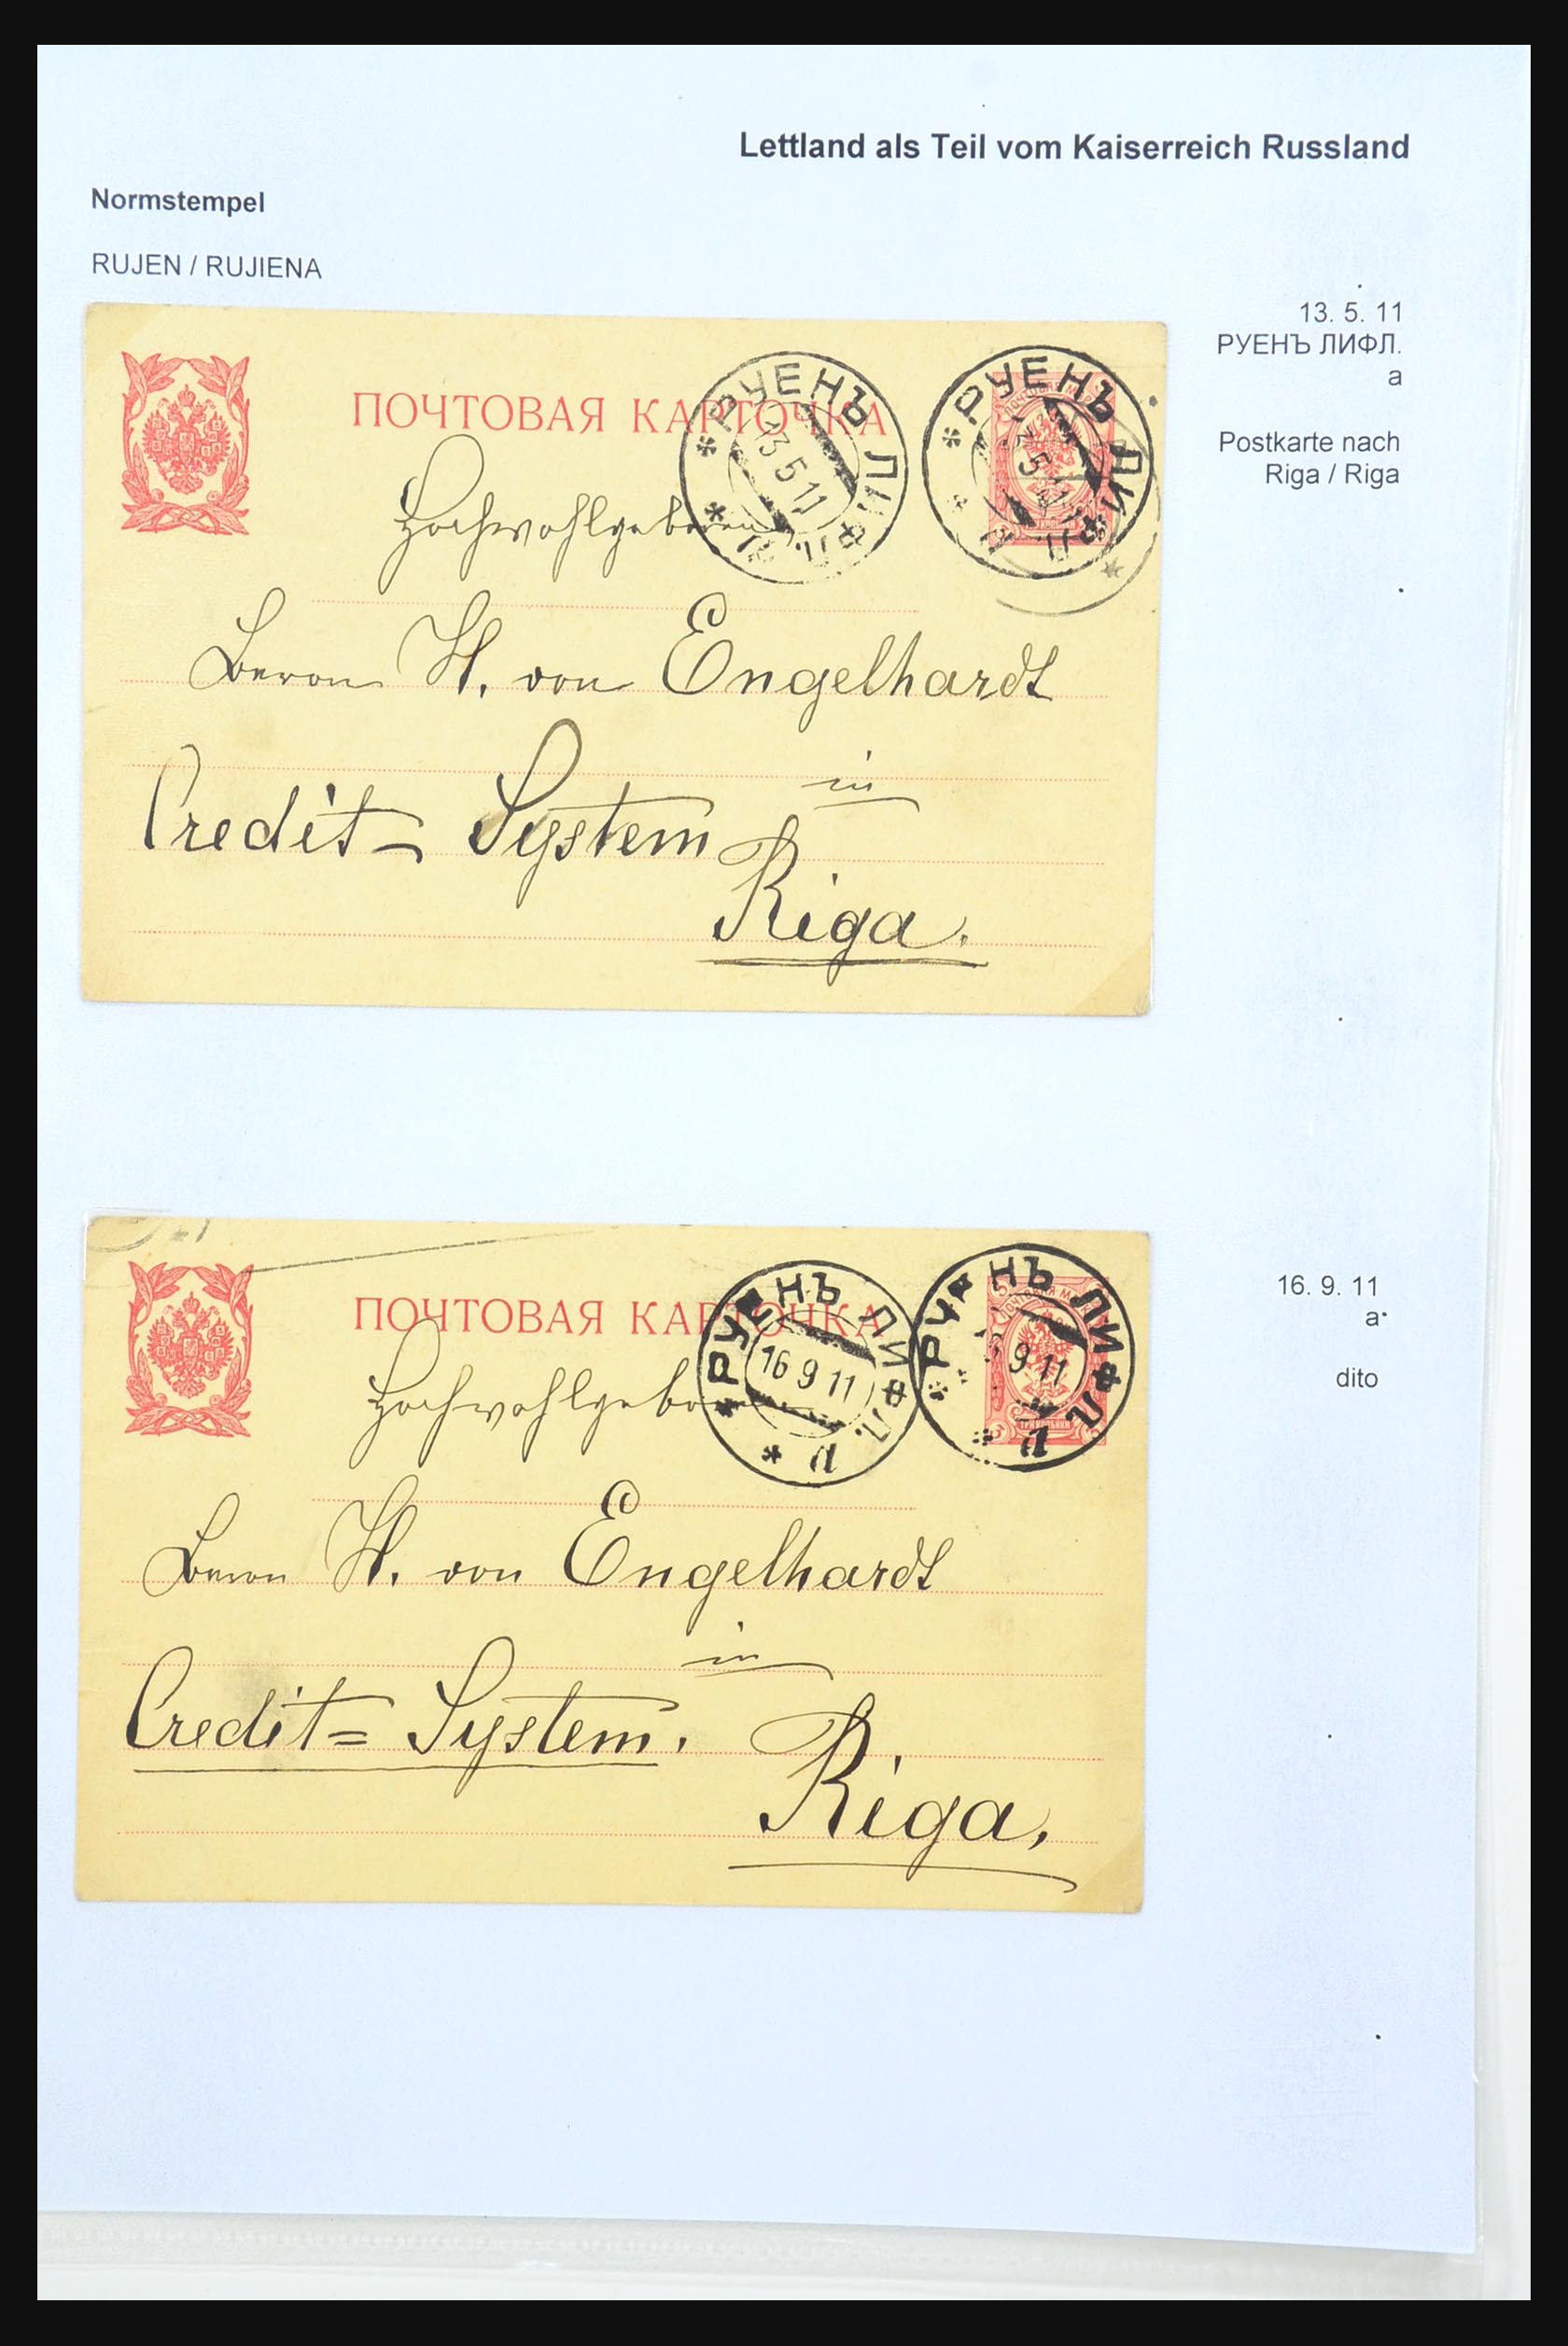 Lettland als Teil vom Kaiserreich Russland
Normstempel
RUJEN / RUJIENA
13. 5. 11
РУЕНЪ ЛИФЛ.
a
Postkarte nach
Riga / Riga
ПОЧТОВАЯ КАРТОЧКА
РУЕНЪ ЛИФЛ.
13 5 11
РУЕНЪ ЛИФЛ. а
13 5 11
Hochwohlgeboren
Baron H. von Engelhardt
in
Credit- System
Riga.
16. 9. 11
a
dito
ПОЧТОВАЯ КАРТОЧКА
РУЕНЪ ЛИФЛ. а
16 9 11
РУЕНЪ ЛИФЛ а
9 11
ТРИ КОПѢЙКИ
Hochwohlgeboren
Baron H. von Engelhardt
in
Credit= System.
Riga,